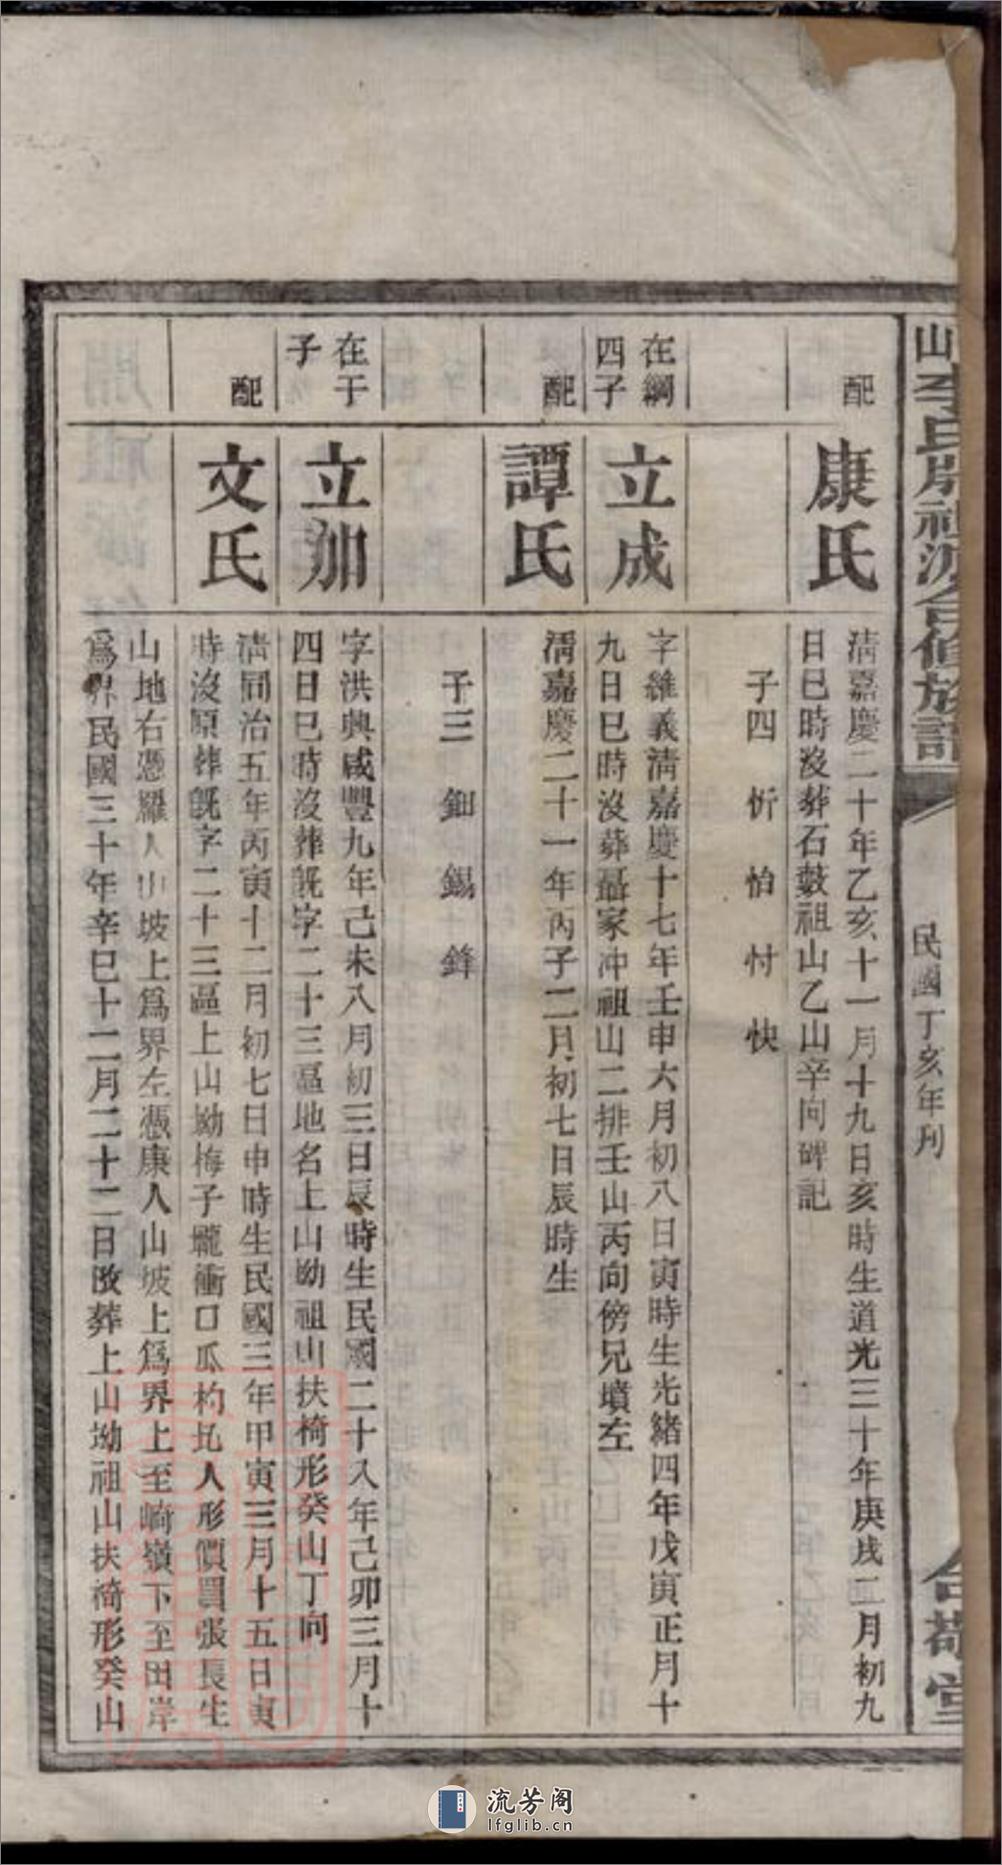 山李氏房祖派合修族譜
民國丁亥年刊
合敬堂
配
康氏
清嘉慶二十年乙亥十一月十九日亥時生道光三十年庚戌二月初九
日巳時沒葬石數祖山乙山辛向碑記
子四 忻 怕 忖 快
在綱
四子
立成
字維義清嘉慶十七年壬申六月初八日寅時生光緒四年戊寅正月十
九日巳時沒葬聶家冲祖山二排壬山丙向傍兄墳左
配
譚氏
清嘉慶二十一年丙子二月初七日辰時生
子三 鈿 錫 鋒
在干
子
立泇
字洪典咸豐九年己未八月初三日辰時生民國二十八年己卯三月十
四日巳時沒葬旣字二十三區地名上山坳祖山扶椅形癸山丁向
配
文氏
清同治五年丙寅十二月初七日申時生民國三年甲寅三月十五日寅
時沒原葬旣字二十三區上山坳梅子壠衝口瓜杓坵人形價買張長生
山地右憑羅人山坡上爲界左憑康人山坡上爲界上至崎嶺下至田岸
爲界民國三十年辛巳十二月二十二日改葬上山坳祖山扶椅形癸山
流芳阁
lfglib.cn